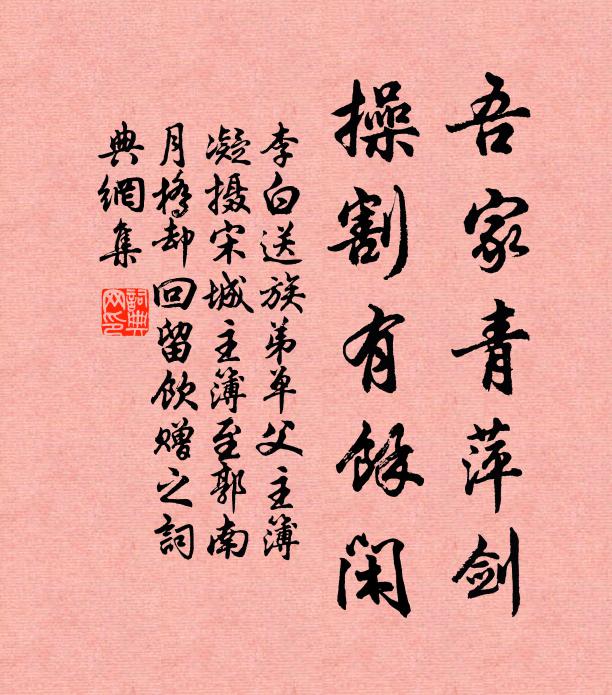 吾家青萍剑
操割有餘闲
李白送族弟单父主簿
凝摄宋城主簿至郭南
月橋却回留饮赠之詞
典網集
詞典
网印